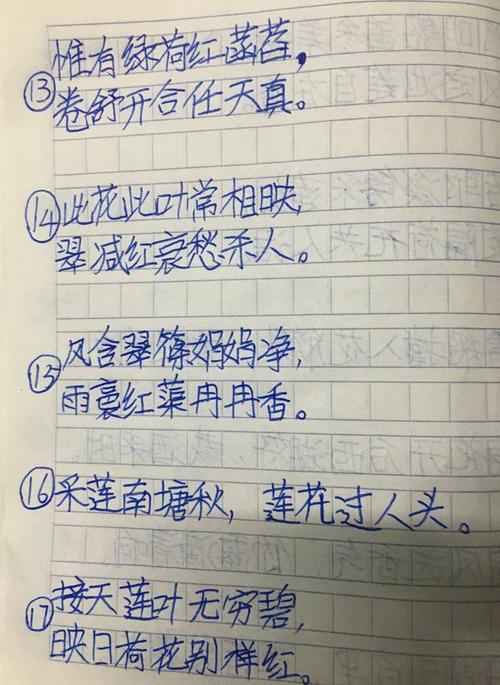 惟有绿荷红菡萏,
⑬
卷舒开合任天真。
⑭此花此叶常相映,
翠减红衰愁杀人。
⑮风含翠篠娟娟净,
雨裛红蕖冉冉香。
⑯采莲南塘秋, 莲花过人头。
⑰接天莲叶无穷碧,
映日荷花别样红。